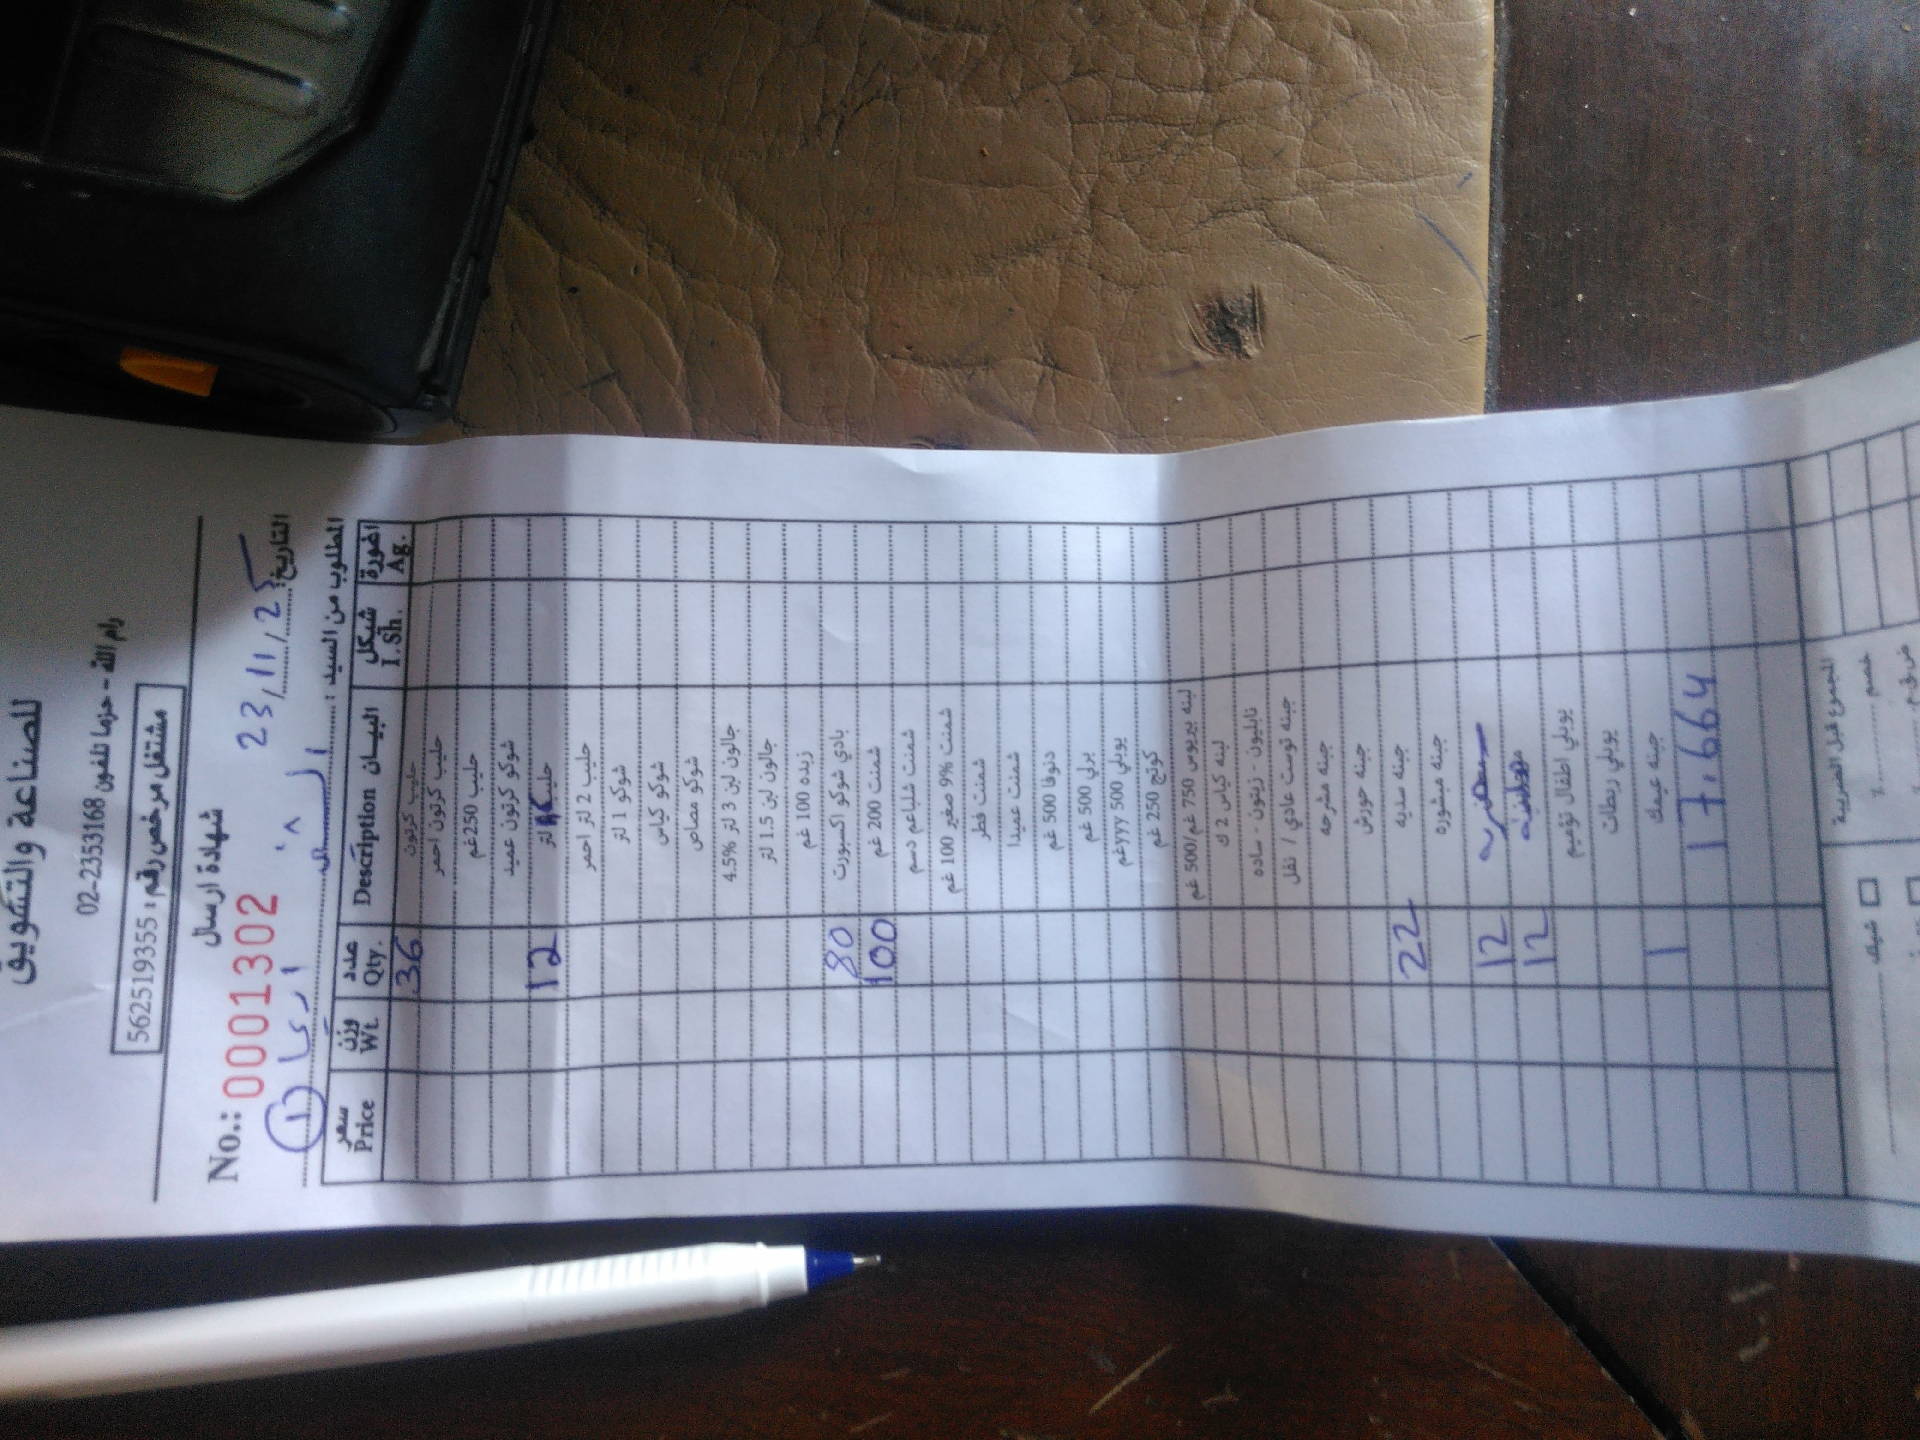 للصناعة والتسويق
رام الله - حزما تلفون 2353168-02
مشتغل مرخص رقم : 562519355
شهادة ارسال
No.: 0001302
التاريخ: 23/11/25
المطلوب من السيد :
سعر وزن عدد البيـــان شيكل اغورة
Price Wt. Qty. Description I.Sh. Ag.
36 حليب كرتون
حليب كرتون احمر
حليب 250غم
شوكو كرتون عميد
12 حليب لتر
حليب 2 لتر احمر
شوكو 1 لتر
شوكو كياس
شوكو مصاص
جالون لبن 3 لتر 4.5%
جالون لبن 1.5 لتر
زبده 100 غم
80 بادي شوكو اكسبورت
100 شمنت 200 غم
شمنت شلباعم دسم
شمنت 9% صغير 100 غم
شمنت فطر
شمنت عميدا
دنوفا 500 غم
برلي 500 غم
يوبلي 500 yyyغم
كوتج 250 غم
لبنه بيريوس 750 غم/500 غم
لبنه كياس 2 ك
نابليون - زيتون - ساده
جبنه توست عادي / تفل
جبنه مشرحه
جبنه حورش
22 جبنه صلبه
جبنه مبشوره
12
12
يوبلي اطفال توميم
يوبلي ربطات
1 جبنه عيمك
17.664
المجموع قبل الضريبة
شيك
خصم %